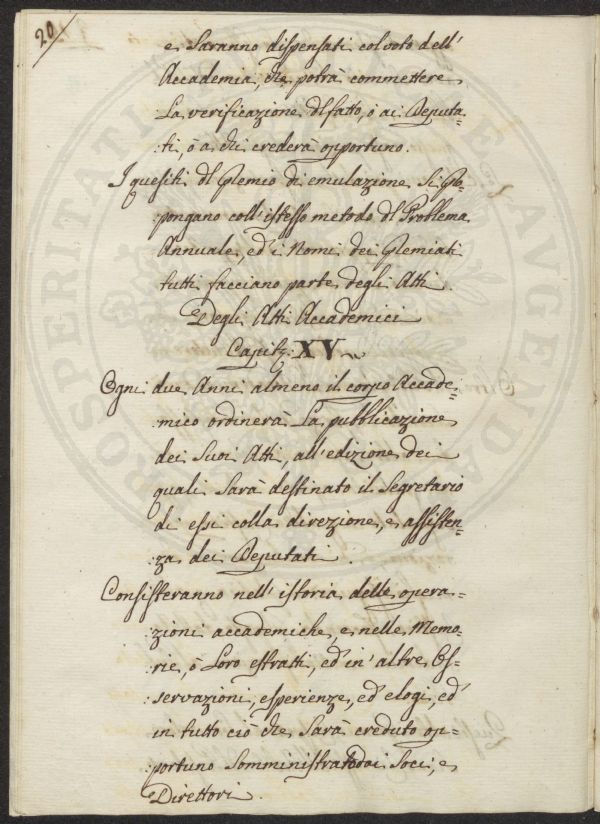 20
e Saranno dispensati col voto dell'
Accademia, che potrà commettere
La verificazione dl fatto, ò ai Deputa=
:ti, ò a chi crederà opportuno.
I quesiti dl Premio di emulazione si Pro=
pongano coll'istesso metodo dl Problema
Annuale, ed' i Nomi dei Premiati
tutti facciano parte degli Atti.
Degli Atti Accademici
Capit: XV
Ogni due Anni almeno il corpo Accade=
:mico ordinerà La pubblicazione
dei Suoi Atti, all'edizione dei
quali Sarà destinato il Segretario
di essi colla direzione, e assisten=
za dei Deputati.
Consisteranno nell'istoria delle opera=
:zioni accademiche, e nelle Memo=
:rie, ò Loro estratti, ed' in' altre Os=
:servazioni, esperienze, ed' elogi, ed'
in tutto ciò che Sarà creduto op=
:portuno Somministrato dai Soci, e
Direttori.
PROSPERITATI AUGENDAE